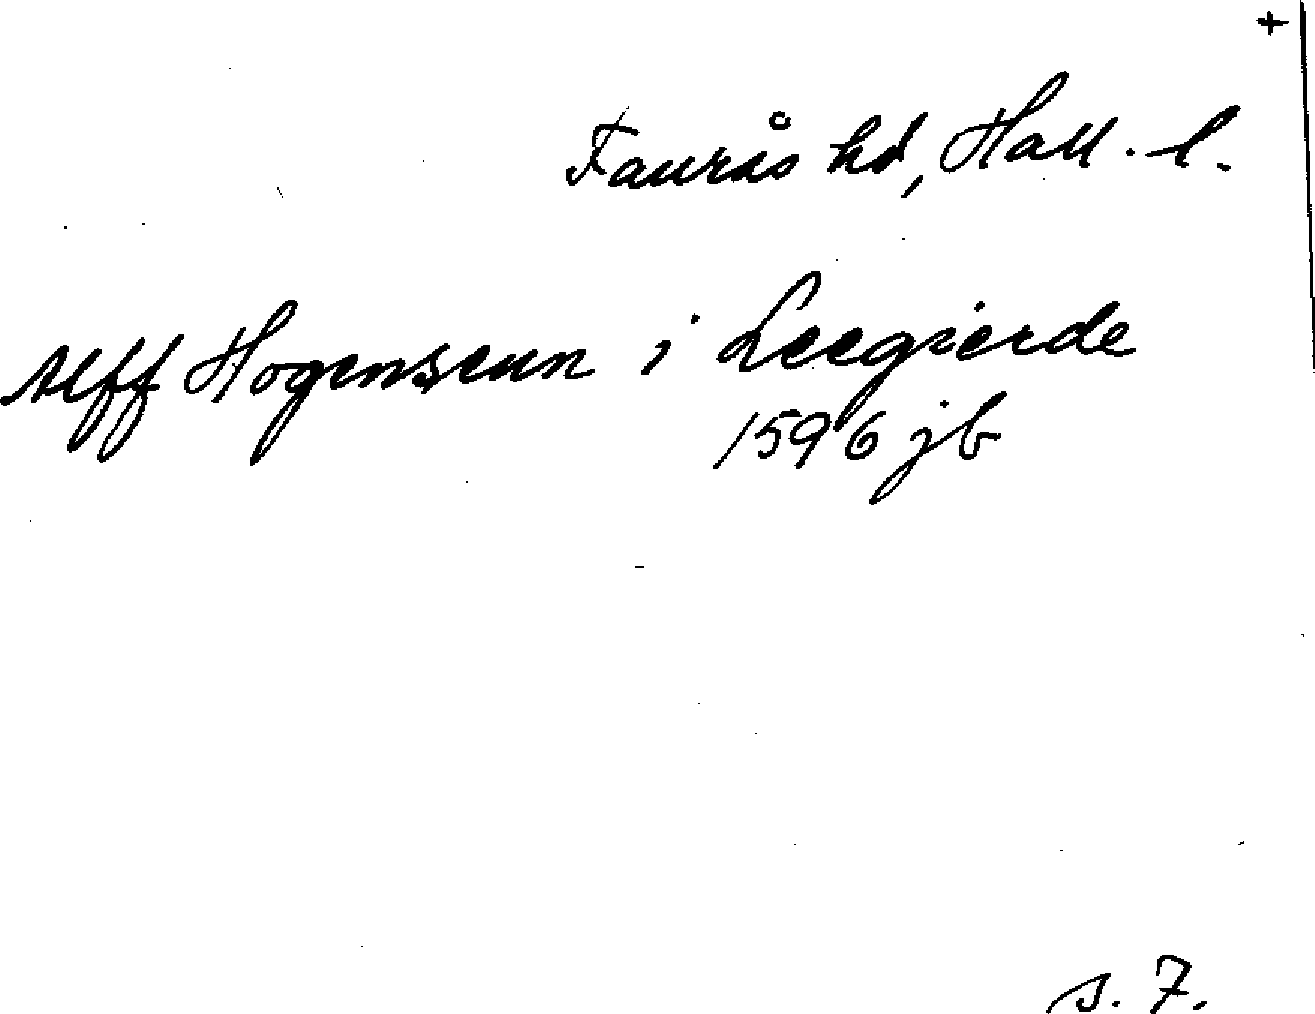 +
Faurås hd, Hall. l.
Alff Hogensenn i Leegierde
1596 jb
s. 7.